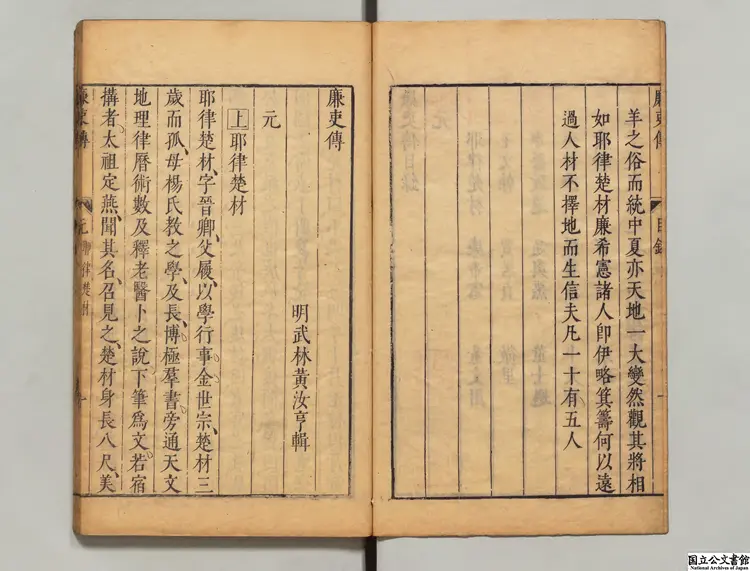 羊之俗而統中夏亦天地一大變然觀其將相
如耶律楚材廉希憲諸人卽伊略箕籌何以遠
過人材不擇地而生信夫凡一十有五人
廉吏傳
目錄
一
廉吏傳
明武林黃汝亨輯
元
上耶律楚材
耶律楚材字晉卿父履以學行事金世宗楚材三
歲而孤母楊氏教之學及長博極羣書旁通天文
地理律曆術數及釋老醫卜之說下筆爲文若宿
搆者太祖定燕聞其名召見之楚材身長八尺美
廉吏傳
元耶律楚材
一
国立公文書館
National Archives of Japan